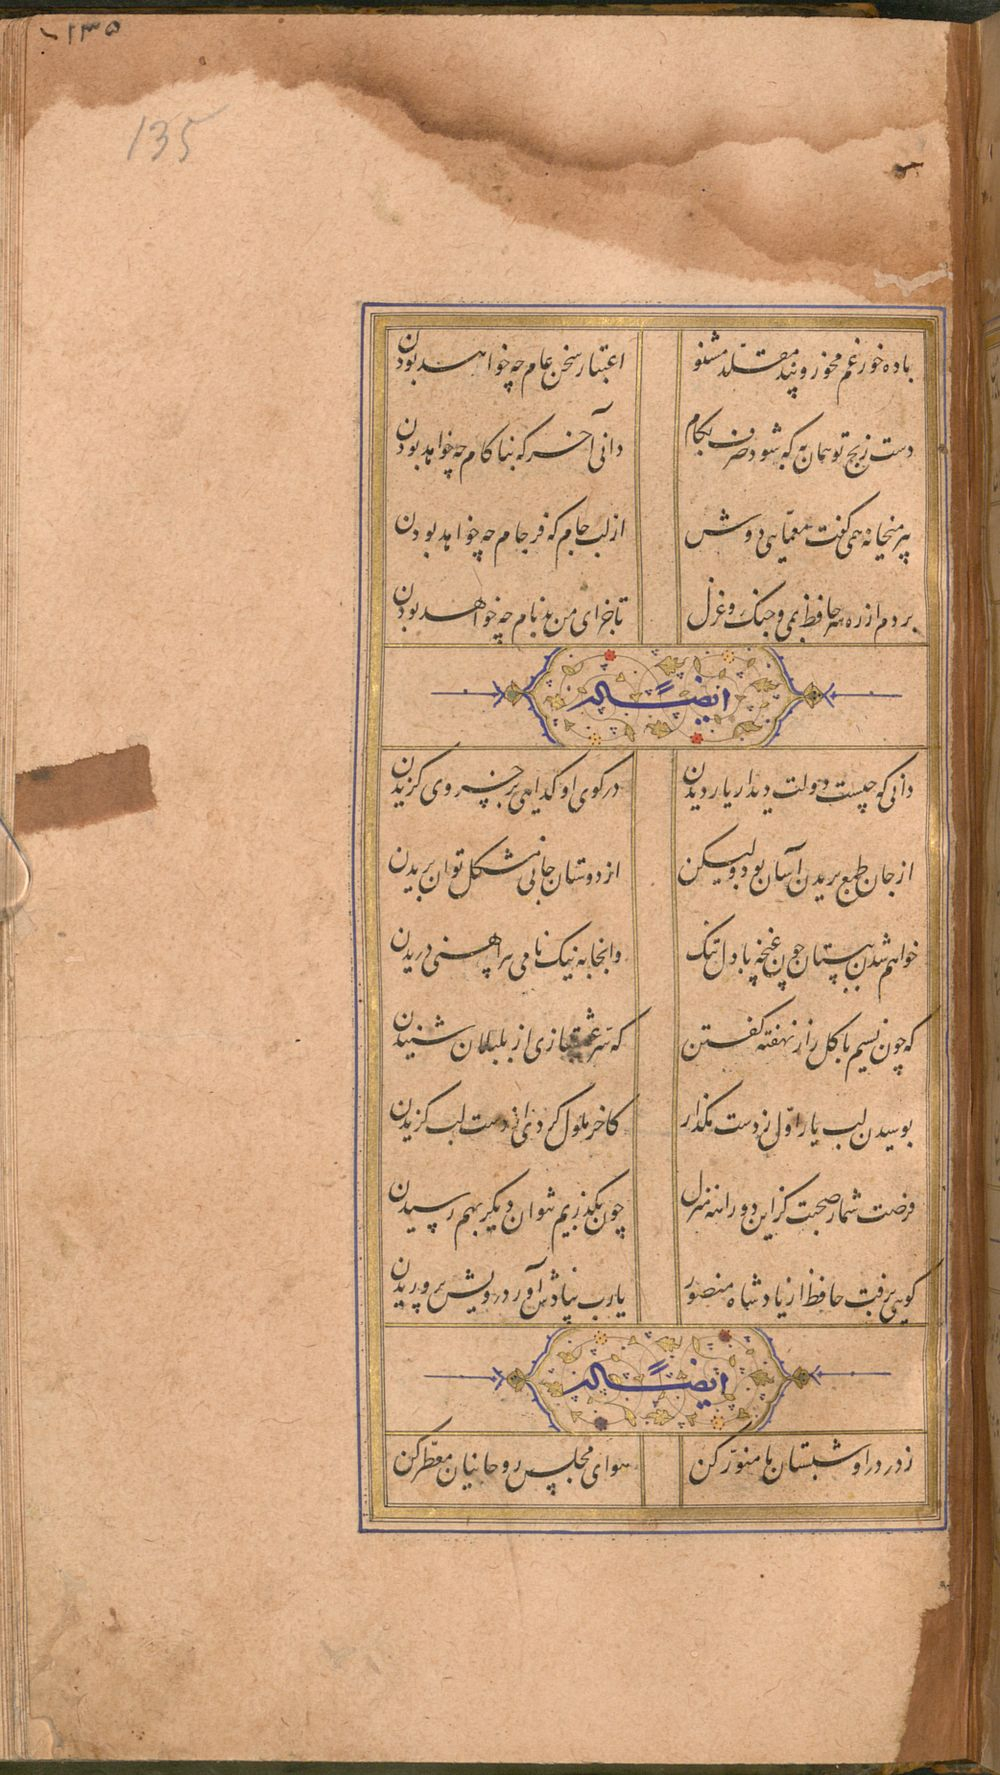 ۱۳۵
135
باده خور غم مخور و پند مقلد مشنو اعتبار سخن عام چه خواهد بودن
دست رنج تو همان به که شود صرف بکام دانی آخر که بناکام چه خواهد بودن
پیر میخانه همی گفت معمایی دوش از لب جام که فرجام چه خواهد بودن
بردم از ره سر حافظ بمی و چنک و غزل تا جزای من بدنام چه خواهد بودن
ایضاً له
دانی که چیست دولت دیدار یار دیدن در کوی او کدایی بر خسروی کزیدن
از جان طمع بریدن آسان بود ولیکن از دوستان جانی مشکل توان بریدن
خواهم شدن ببستان چون غنچه با دل تنک وانجا به نیک نامی پیراهنی دریدن
که چون نسیم با کل راز نهفته کفتن که سر عشقبازی از بلبلان شنیدن
بوسیدن لب یار اول ز دست مکذار کاخر ملول کردی از دست لب کزیدن
فرصت شمار صحبت کز این دوراهه منزل چون بکذریم نتوان دیکر بهم رسیدن
کویی برفت حافظ از یاد شاه منصور یارب بیادش آور درویش پروریدن
ایضاً له
ز در درا و شبستان ما منور کن هوای مجلس روحانیان معطر کن